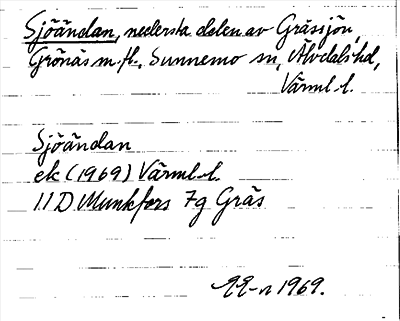 Sjöändan, nedersta delen av Grässjön,
Grönäs m.fl., Sunnemo sn, Älvdals hd,
Värml. l.
Sjöändan
ek (1969) Värml. l.
11 D Munkfors 7g Gräs
1969.